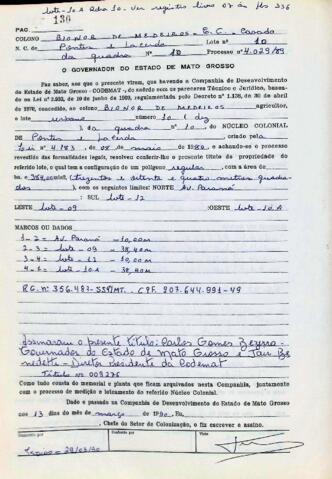 lote-10 A Rcha 10. Ver registro livro 08 A fls 336
136
PAC
COLONO BIONOR DE MEDEIROS - E.C. Casado
Lote nº 10
N. C. de Pontes e Lacerda quadra nº 10 Processo nº 4.029/89
O GOVERNADOR DO ESTADO DE MATO GROSSO
Faz saber, aos que o presente virem, que havendo a Companhia de Desenvolvimento
do Estado de Mato Grosso - CODEMAT, de acordo com os pareceres Técnico e Jurídico, basea-
de 1970, concedido, ao colono BIONOR DE MEDEIROS agricultor,
o lote urbano 10 (dez
) da quadra nº 10. do NÚCLEO COLONIAL
de Pontes Lacerda criado pela
Lei nº 4.183, de 08 de maio de 1980 e achando-se o processo
revestido das formalidades legais, resolveu conferir-lhe o presente título de propriedade do
referido lote, o qual tem a configuração de um polígono regular, com a área de
ha. 384,00m² (trezentos e oitenta e quatro metros quadra
dos), com os seguintes limites: NORTE Av. Paraná
: SUL lote-12
LESTE lote-09 :OESTE lote-10.A
MARCOS OU DADOS
1-2= Av. Paraná -10,00m
2-3= lote-09 -38,40m
3-4= lote-12 -10,00m
4-1= lote-10A -38,40m
RG. nº 356.487-SSP/MT. CPF. 207.644.991-49
Assinaram o presente título: Carlos Gomes Bezerra-
Governador do Estado de Mato Grosso e Jair Be
nedetti - Diretor Presidente da Codemat
Título nº 009276
Como tudo consta do memorial e planta que ficam arquivados nesta Companhia, juntamente
com o processo de medição e loteamento do referido Núcleo Colonial.
Dado e passado na Companhia de Desenvolvimento do Estado de Mato Grosso
aos 13 dias do mês de março de 1990. Eu,
, Chefe do Setor de Colonização, o fiz escrever e assino.
Conferido em
Visto
29/03/90